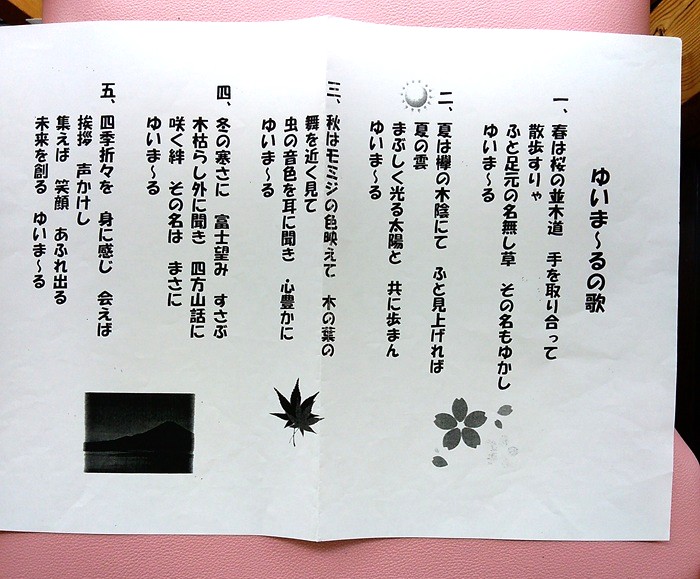 ゆいま～るの歌
一、春は桜の並木道　手を取り合って
散歩すりゃ
ふと足元の名無し草　その名もゆかし
ゆいま～る
二、夏は欅の木陰にて　ふと見上げれば
夏の雲
まぶしく光る太陽と　共に歩まん
ゆいま～る
三、秋はモミジの色映えて　木の葉の
舞を近く見て
虫の音色を耳に聞き　心豊かに
ゆいま～る
四、冬の寒さに　富士望み　すさぶ
木枯らし外に聞き　四方山話に
咲く絆　その名は　まさに
ゆいま～る
五、四季折々を　身に感じ　会えば
挨拶　声かけし
集えば　笑顔　あふれ出る
未来を創る　ゆいま～る